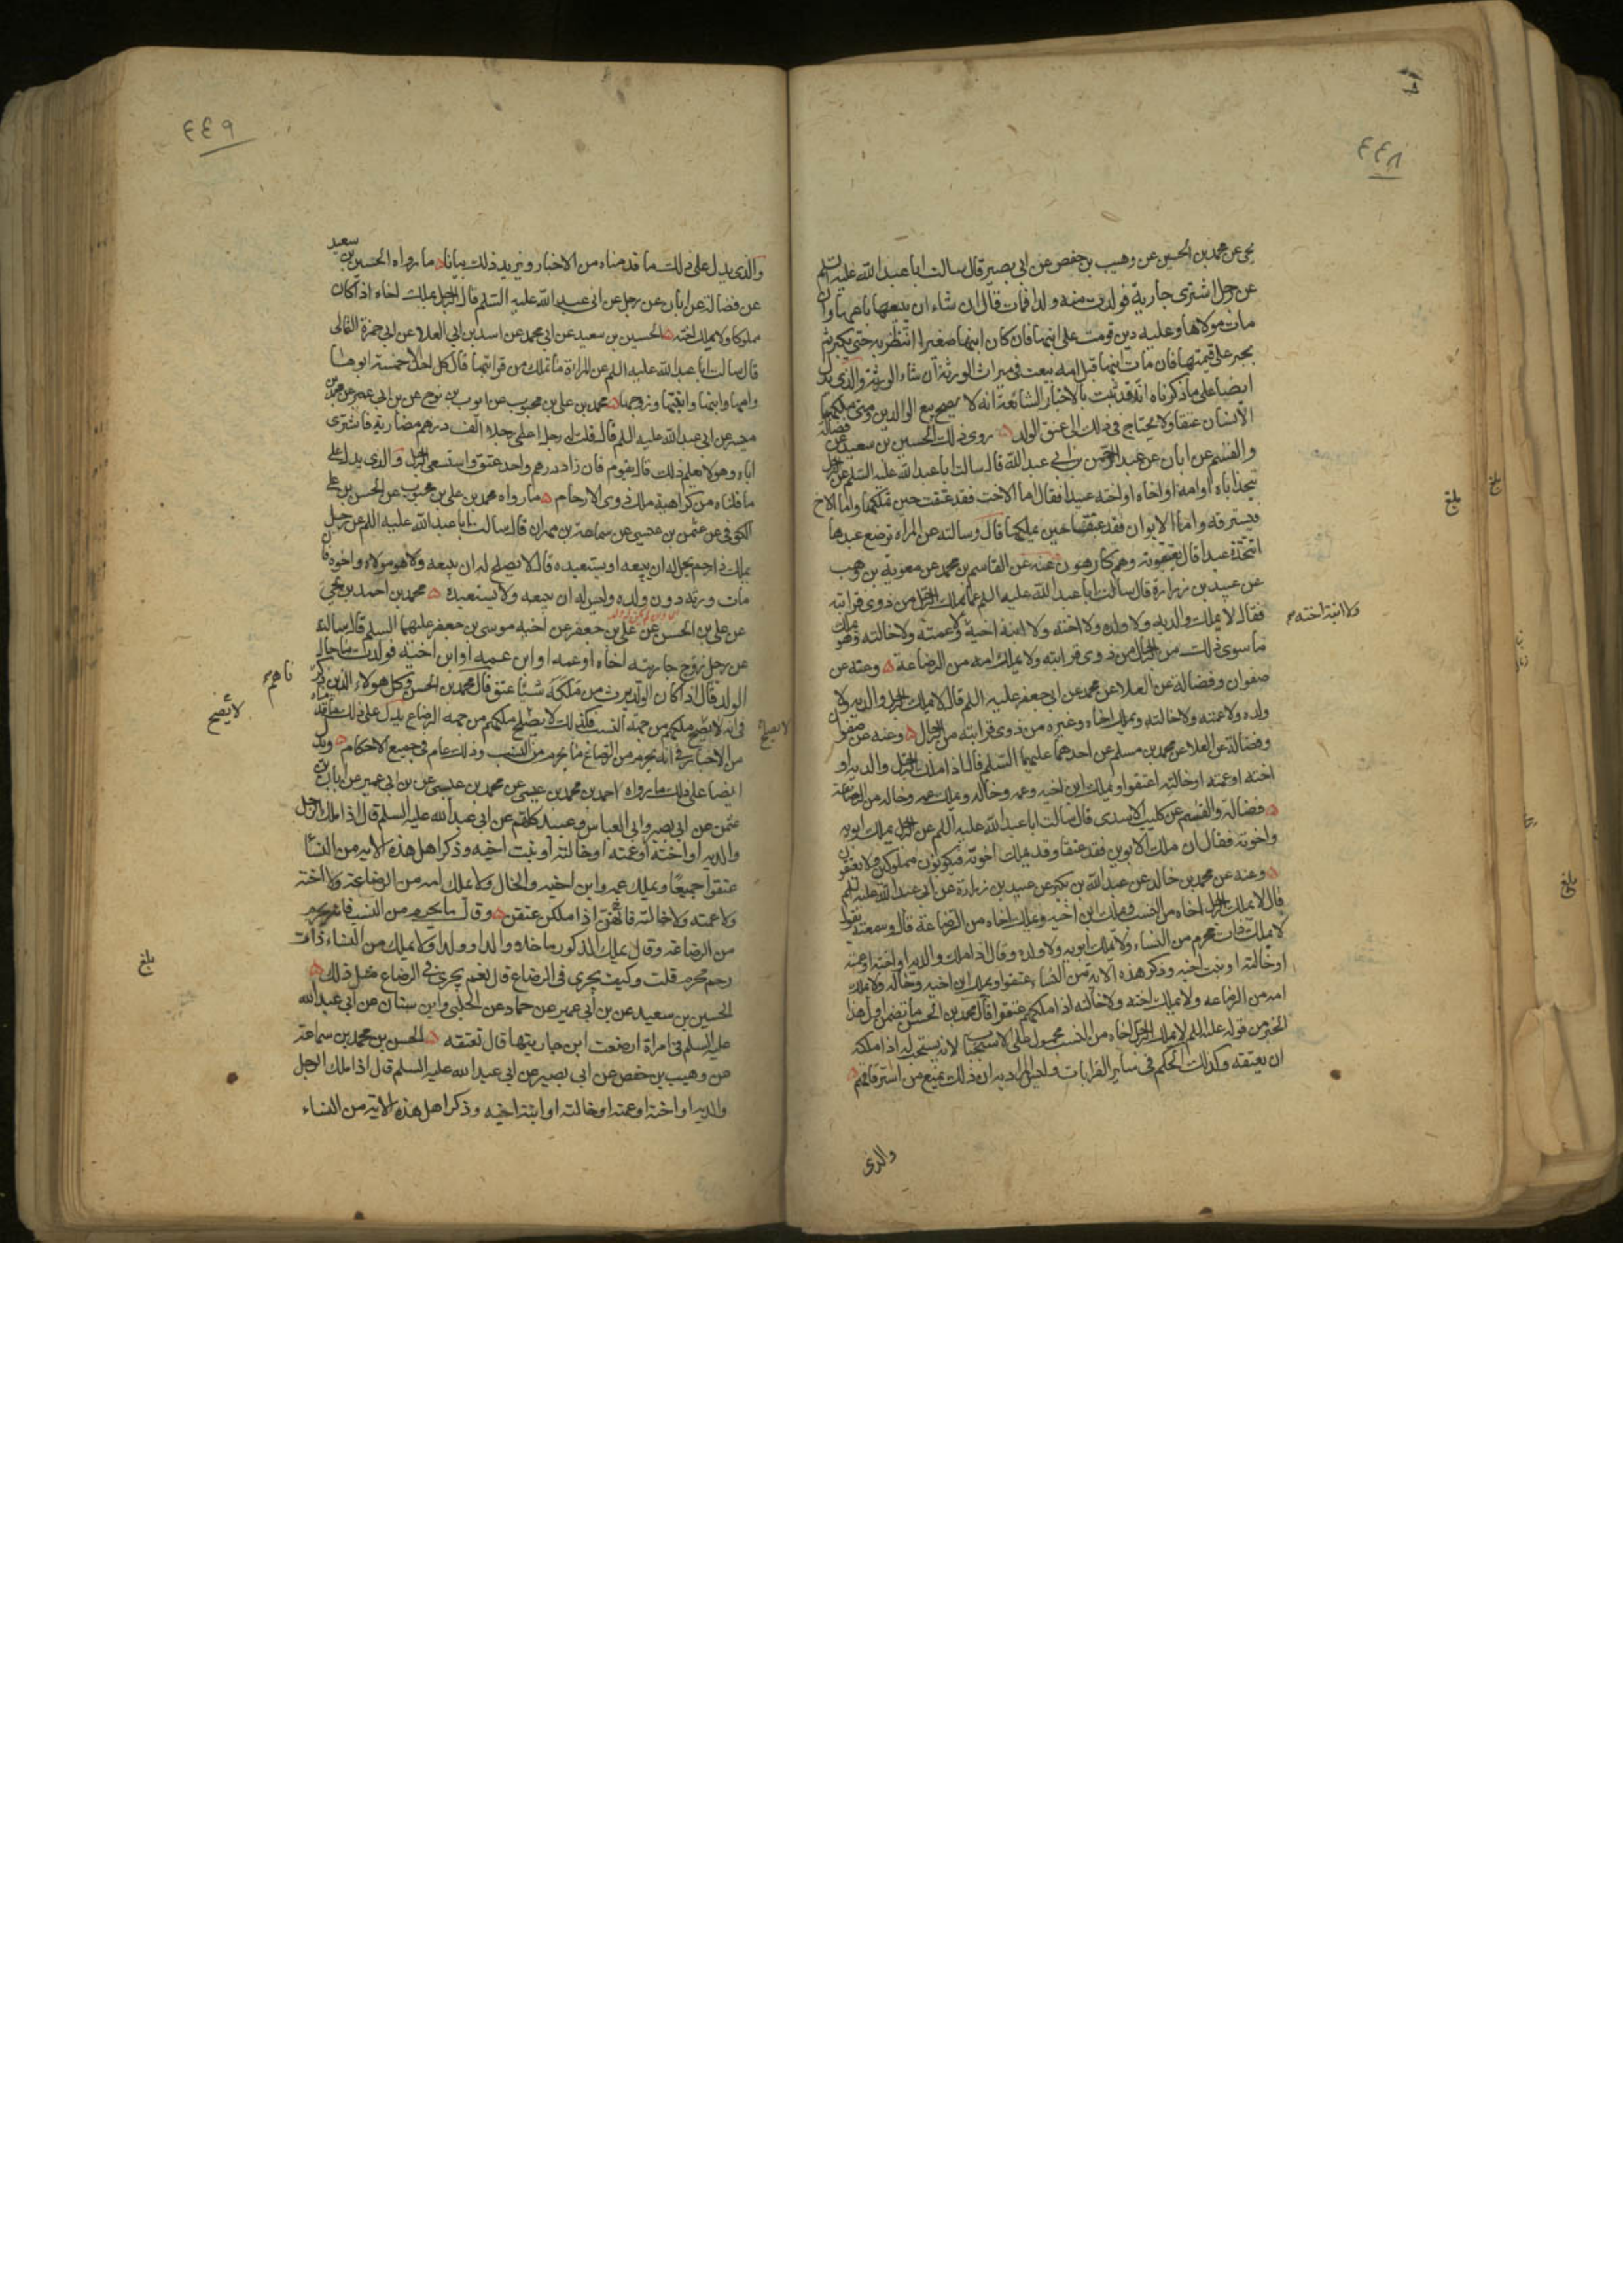 ٤٤٨
يحيى عن محمد بن الحسين عن وهيب بن حفص عن ابي بصير قال سالت ابا عبدالله عليه السلم
عن رجل اشترى جارية فولدت منه ولدا فمات قال ان شاء ان يبيعها باعها وان
مات مولاها وعليه دين قومت على ابنها فان كان ابنها صغيرا انتظر به حتى يكبر ثم
يجبر على قيمتها فان مات ابنها قبل امه بيعت في ميراث الورثة ان شاء الورثة والذي يدل
ايضا على ما ذكرناه انه قد ثبت بالاخبار الشائعة انه لا يصح بيع الوالدين ومتى ملكهما
الانسان عتقا ولا يحتاج في ذلك الى عتق الولد روى ذلك الحسين بن سعيد عن فضالة
والقسم عن ابان عن عبد الرحمن بن ابي عبد الله قال سالت ابا عبد الله عليه السلم عن الرجل
يتخذ اباه او امه او اخاه او اخته عبيدا فقال اما الاخت فقد عتقت حين يملكها واما الاخ
فيسترقه واما الابوان فقد عتقا حين يملكهما قال وسالته عن المراة ترضع عبدها
اتتخذه عبدا قال يعتقونه وهم كارهون وعنه عن القاسم بن محمد عن معوية بن وهب
عن عبيد بن زرارة قال سالت ابا عبد الله عليه السلم عما يملك الرجل من ذوي قرابته
فقال لا يملك والديه ولا ولده ولا اخته ولا ابنة اخيه ولا عمته ولا خالته وهو يملك
ولا ابنة اخته
ما سوى ذلك من الرجال من ذوي قرابته ولا يملك امه من الرضاعة وعنه عن
صفوان وفضالة عن العلا عن محمد عن ابي جعفر عليه السلم قال لا يملك الرجل والديه ولا
ولده ولا عمته ولا خالته ويملك اخاه وغيره من ذوي قرابته من الرجال وعنه عن صفوان
وفضالة عن العلا عن محمد بن مسلم عن احدهما عليهما السلم قال اذا ملك الرجل والديه او
اخته او عمته او خالته اعتقوا ويملك ابن اخيه وعمه وخاله ويملك عمه وخاله من الرضاعة
فضالة والقسم عن كليب الاسدي قال سالت ابا عبد الله عليه السلم عن الرجل يملك ابويه
واخوته فقال ان ملك الابوين فقد عتقا وقد يملك اخوته فيكونون مملوكين ولا يعتقون
وعنه عن محمد بن خالد عن عبد الله بن بكير عن عبيد بن زرارة عن ابي عبد الله عليه السلم
قال لا يملك الرجل اخاه من النسب ويملك ابن اخيه ويملك اخاه من الرضاعة قال وسمعته يقول
لا يملك ذات محرم من النساء ولا يملك ابويه ولا ولده وقال اذا ملك والديه او اخته او عمته
او خالته او بنت اخيه وذكر هذه الاية من النساء عتقوا ويملك ابن اخيه وخاله ولا يملك
امه من الرضاعه ولا يملك اخته ولا خالته اذا ملكهم عتقوا قال محمد بن الحسن ما تضمن اول هذا
الخبر من قوله عليه السلم لا يملك الرجل اخاه من النسب محمول على الاستحباب لانه يستحب له اذا ملكه
ان يعتقه وكذلك الحكم في ساير القرابات وليس المراد به ان ذلك يمنع من استرقاقهم
والذي
بلغ
بلغ
بلغ
٤٤٩
والذي يدل على ذلك ما قدمناه من الاخبار ونزيد ذلك بيانا ما رواه الحسين بن سعيد
عن فضالة عن ابان عن رجل عن ابي عبد الله عليه السلم قال الرجل يملك اخاه اذا كان
مملوكا ولا يملك اخته الحسين بن سعيد عن ابي محمد عن اسد بن ابي العلا عن ابي حمزة الثمالي
قال سالت ابا عبد الله عليه السلم عن المراة ما تملك من قرابتها قال كل احد الا خمسة ابوها
وامها وابنها وابنتها وزوجها محمد بن علي بن محبوب عن ايوب بن نوح عن بن ابي عمير عن محمد بن
ميسر عن ابي عبد الله عليه السلم قال قلت له رجل اعطى رجلا الف درهم مضاربة فاشترى
اباه وهو لا يعلم ذلك قال يقوم فان زاد درهم واحد عتق واستسعى الرجل والذي يدل على
ما قلناه من كراهية ملك ذوي الارحام ما رواه محمد بن علي بن محبوب عن الحسن بن علي
الكوفي عن عثمن بن عيسى عن سماعة بن مهران قال سالت ابا عبد الله عليه السلم عن رجل
يملك ذا رحم يحل له ان يبيعه او يستعبده قال لا يصلح له ان يبيعه ولا هو مولاه واخوه فان
مات ورثه دون ولده وليس له ان يبيعه ولا يستعبده محمد بن احمد بن يحيى
عن علي بن الحسن عن علي بن جعفر عن اخيه موسى بن جعفر عليهما السلم قال سالته
عن رجل زوج جاريته اخاه او عمه او ابن عمه او ابن اخيه فولدت ما حال
الولد قال اذا كان الولد يرث من ملكه شيئا عتق قال محمد بن الحسن وكل هولاء الذين ذكرناهم
في انه لا يصح ملكهم من جهة النسب فكذلك لا يصلح ملكهم من جهة الرضاع يدل على ذلك ما قدمناه
لا يصلح
لا يصح
من الاخبار في انه يحرم من الرضاع ما يحرم من النسب وذلك عام في جميع الاحكام ويدل
ايضا على ذلك ما رواه احمد بن محمد بن عيسى عن محمد بن عيسى عن بن ابي عمير عن ابان بن
عثمن عن ابي بصير وابي العباس وعبيد كلهم عن ابي عبد الله عليه السلم قال اذا ملك الرجل
والديه او اخته او عمته او خالته او بنت اخيه وذكر اهل هذه الاية من النسا
عتقوا جميعا ويملك عمه وابن اخيه والخال ولا يملك امه من الرضاعة ولا اخته
ولا عمته ولا خالته فانهن اذا ملكن عتقن وقال ما يحرم من النسب فانه يحرم
من الرضاعة وقال يملك الذكور ما خلا والدا وولدا ولا يملك من النساء ذات
رحم محرم قلت وكيف يجري في الرضاع قال نعم يجري في الرضاع مثل ذلك
الحسين بن سعيد عن بن ابي عمير عن حماد عن الحلبي وابن سنان عن ابي عبد الله
عليه السلم في امراة ارضعت ابن جاريتها قال تعتقه الحسن بن محمد بن سماعة
عن وهيب بن حفص عن ابي بصير عن ابي عبد الله عليه السلم قال اذا ملك الرجل
والديه او اخته او عمته او خالته او ابنة اخيه وذكر اهل هذه الاية من النساء
بلغ